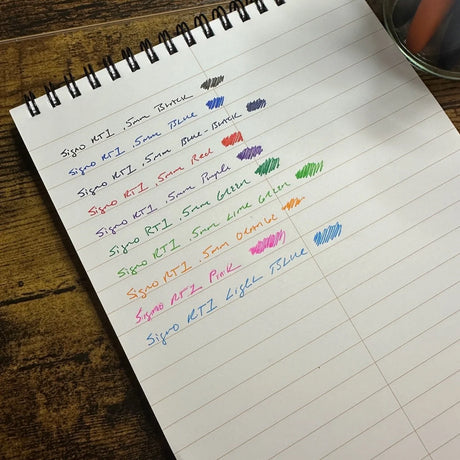 Signo RT1 .5mm Black
Signo RT1 .5mm Blue
Signo RT1 .5mm Blue-Black
Signo RT1 .5mm Red
Signo RT1 .5mm Purple
Signo RT1 .5mm Green
Signo RT1 .5mm Lime Green
Signo RT1 .5mm Orange
Signo RT1 Pink
Signo RT1 Light Blue